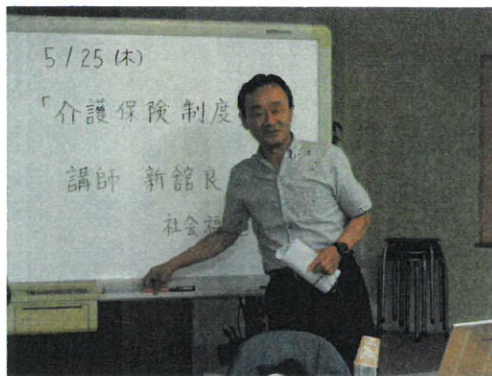 5/25(木)
「介護保険制度
講師 新舘良
社会福